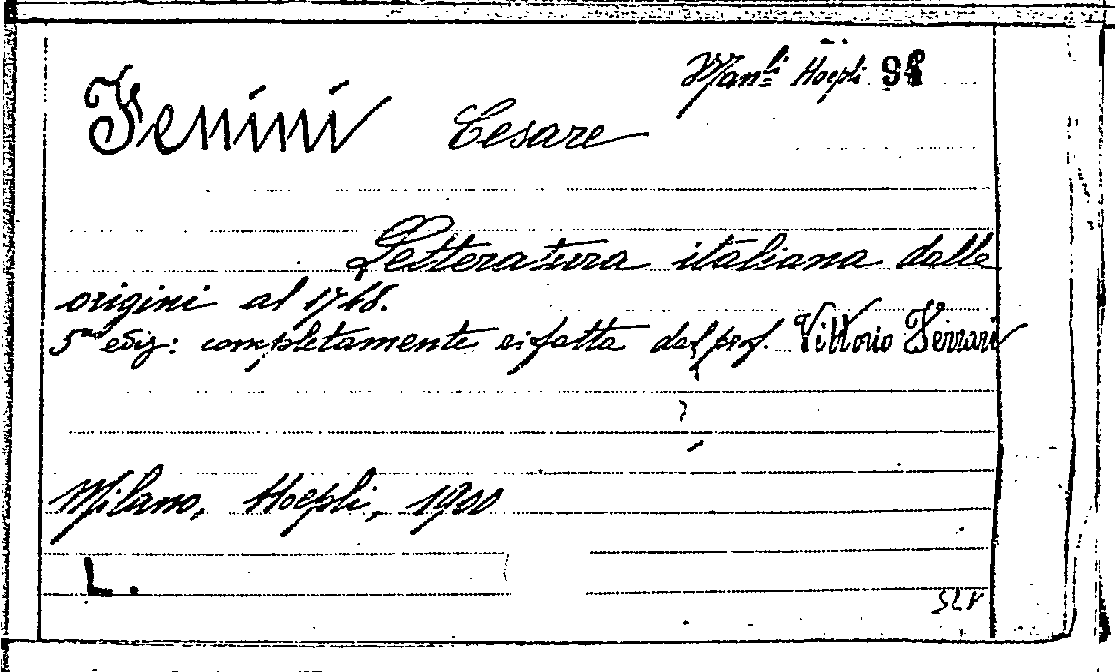 Man.li Hoepli
Fenini Cesare
Letteratura italiana dalle
origini al 1748.
5a ediz: completamente rifatta dal prof. Vittorio Ferrari
Milano, Hoepli, 1900
L.